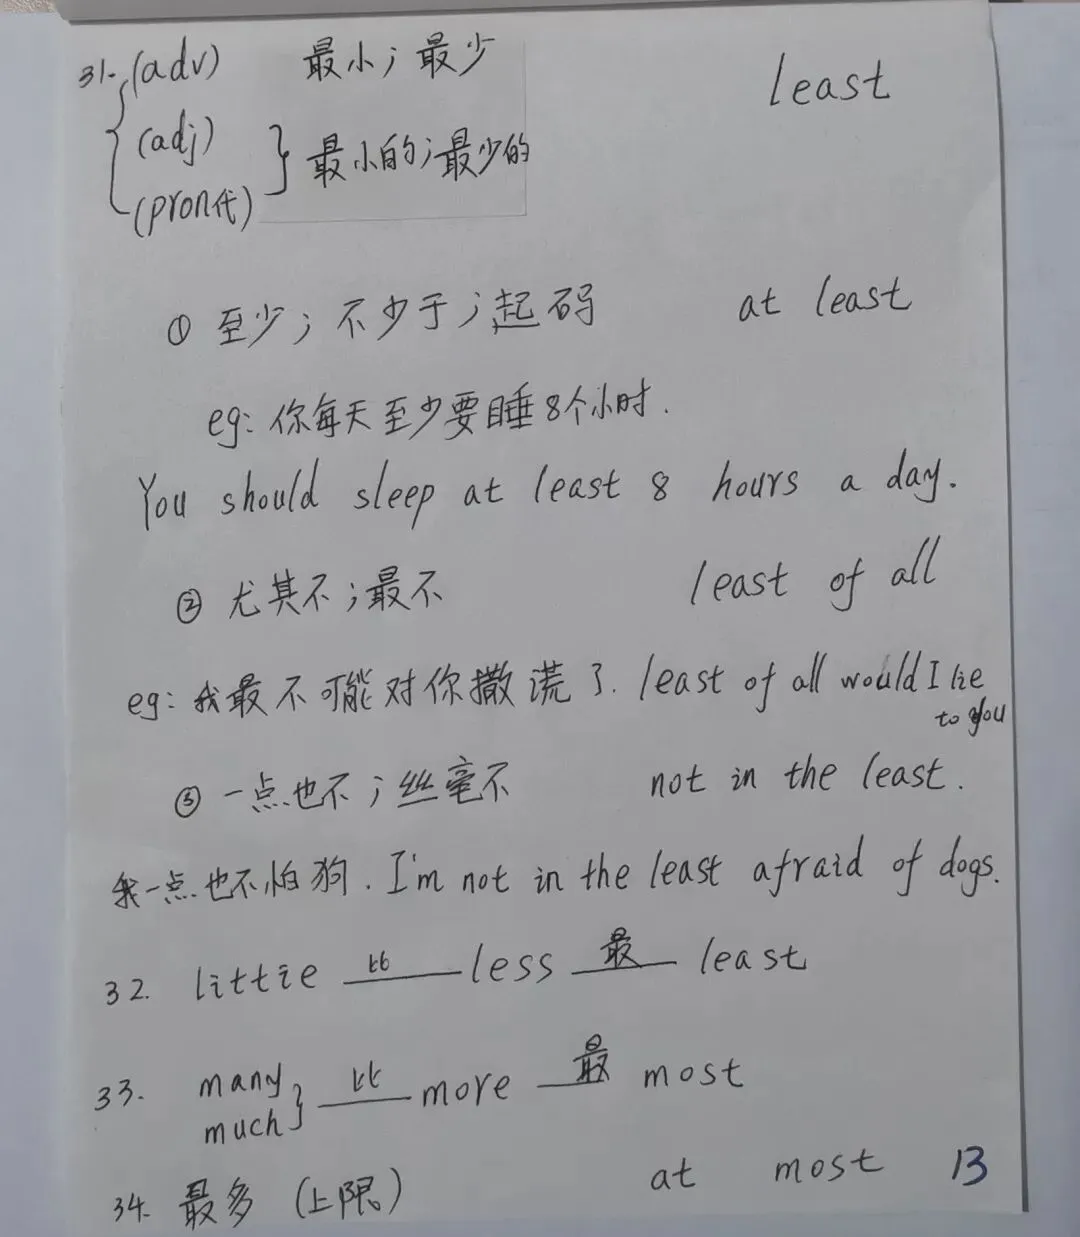 31. (adv) 最小；最少 least
(adj) 最小的；最少的
(pron代)
① 至少；不少于；起码 at least
eg: 你每天至少要睡8个小时.
You should sleep at least 8 hours a day.
② 尤其不；最不 least of all
eg: 我最不可能对你撒谎了. least of all would I lie
to you
③ 一点也不；丝毫不 not in the least.
我一点也不怕狗. I'm not in the least afraid of dogs.
32. little 比 less 最 least
33. many 比 more 最 most
much
34. 最多 (上限) at most 13